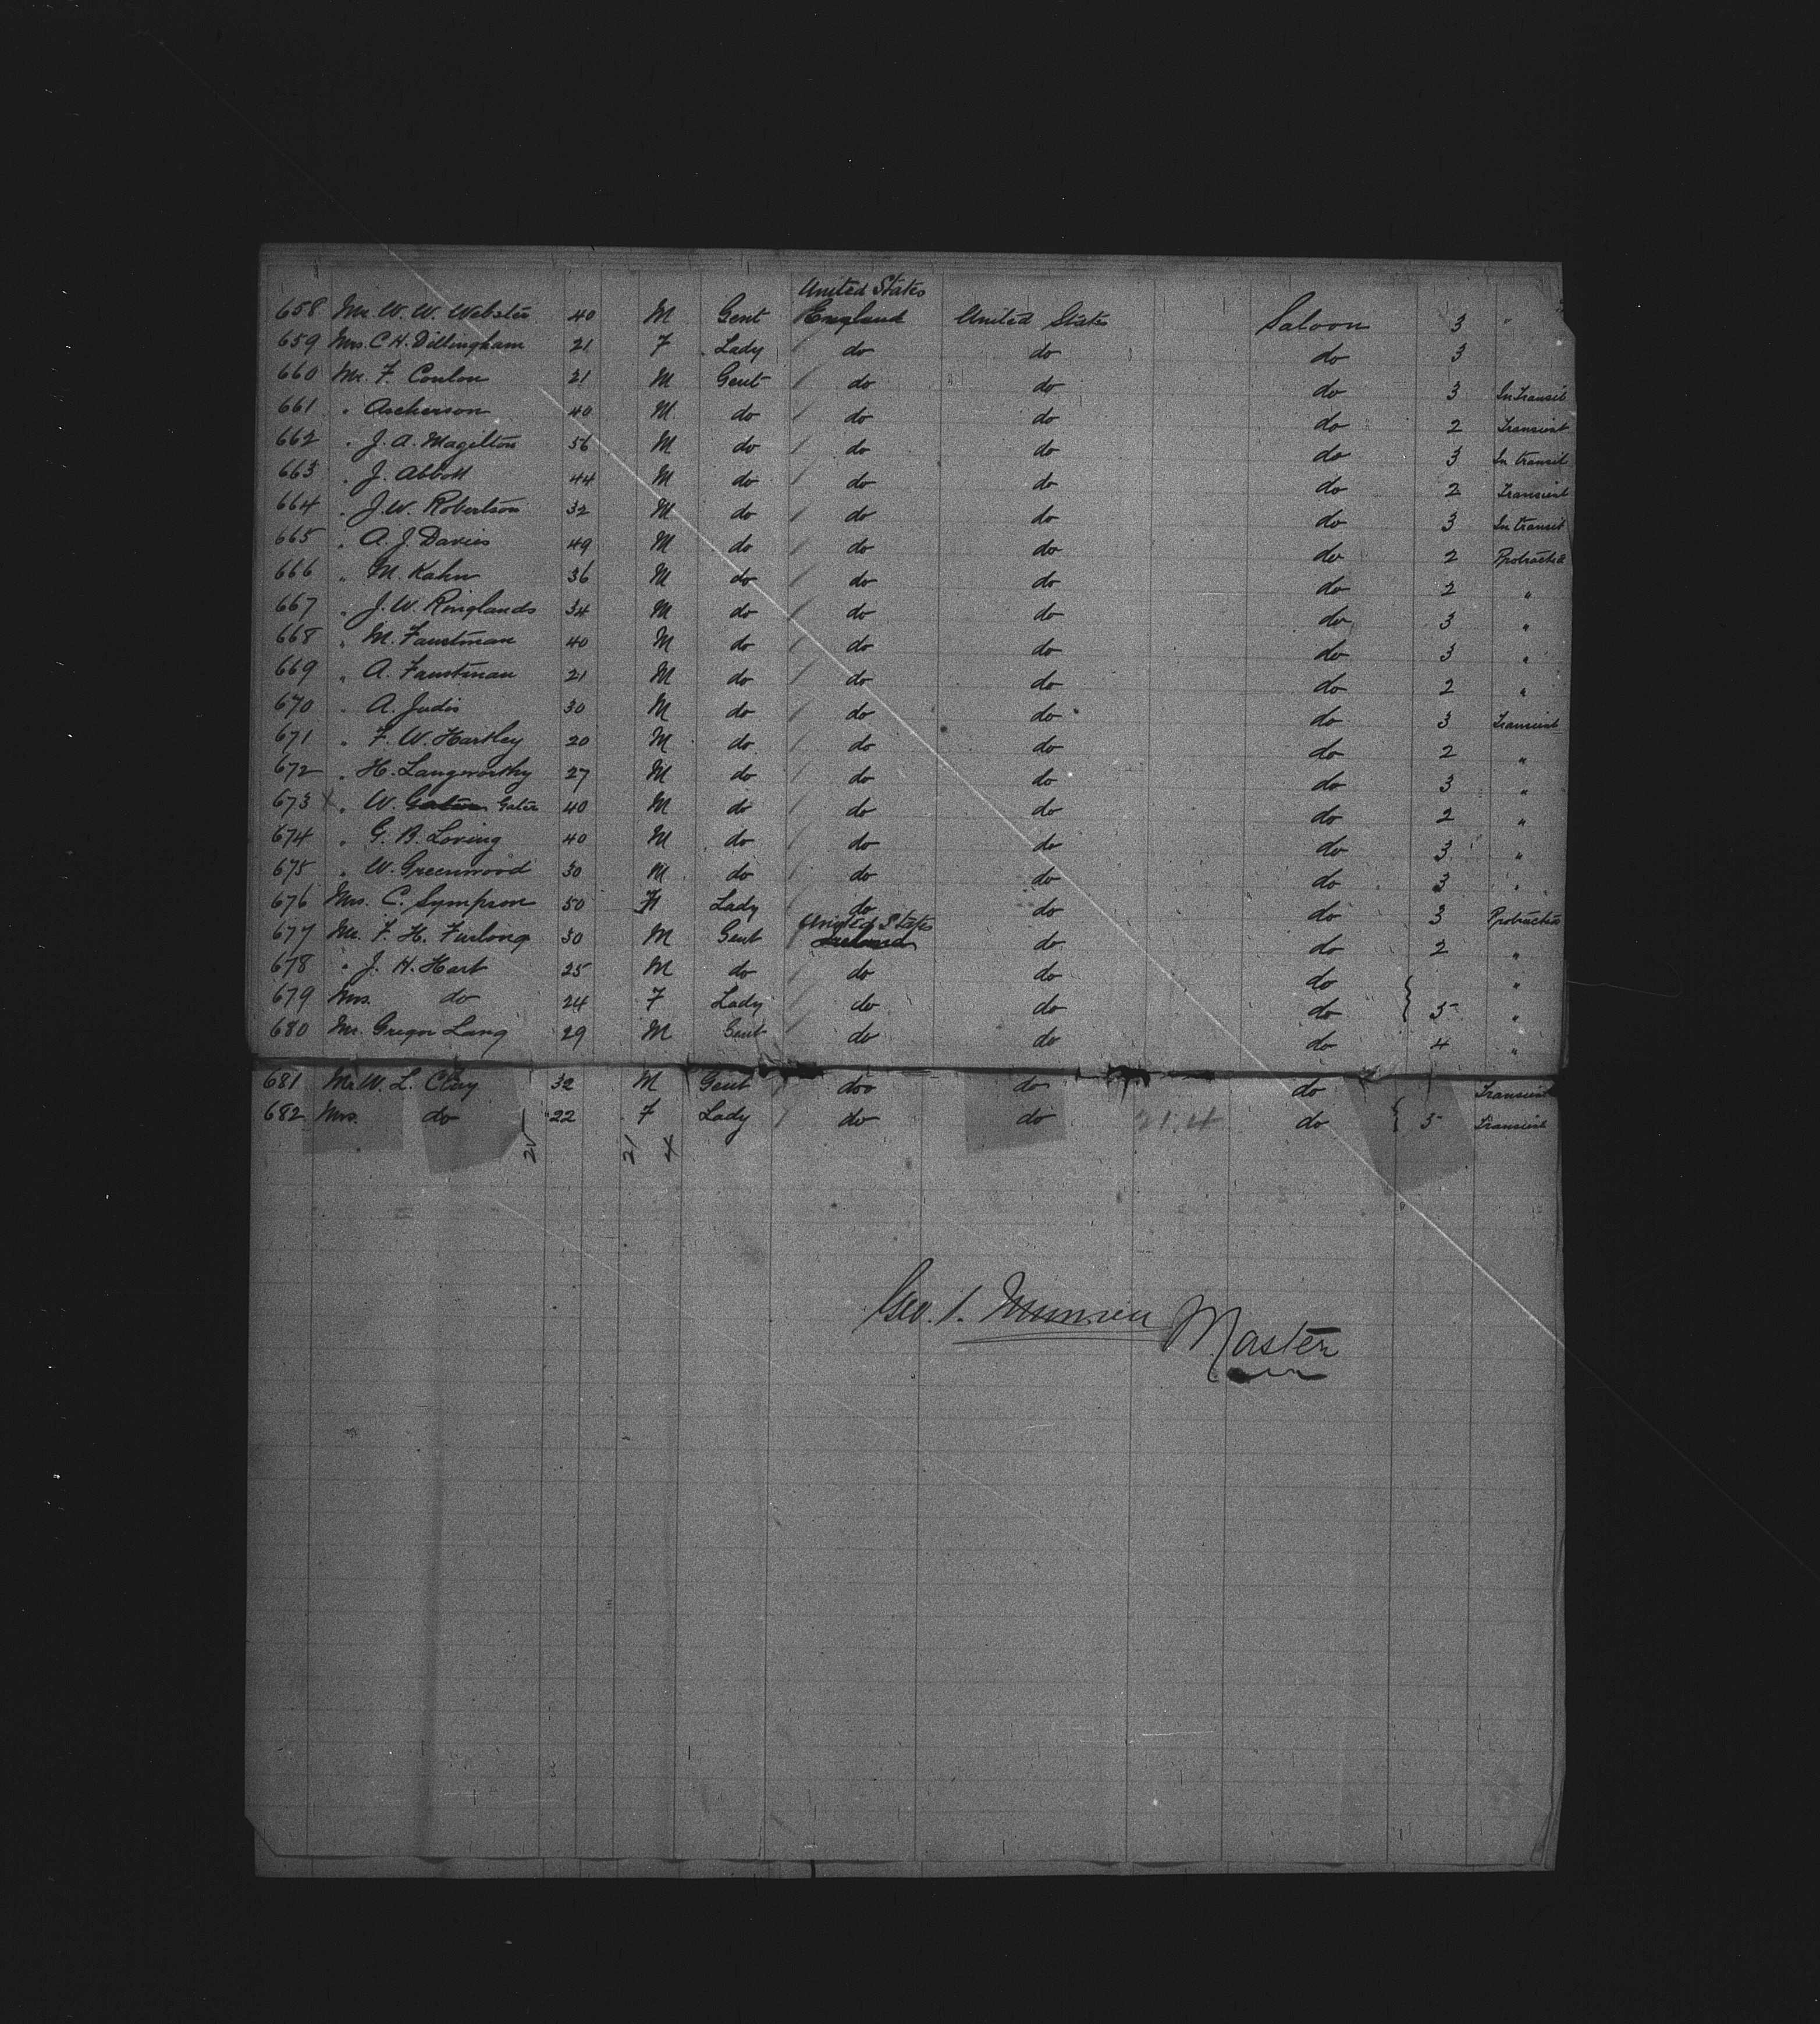 United States
658 Mr. W. W. Webster 40 M Gent England United States Saloon 3 "
659 Mrs. C H. Dillingham 21 F Lady do do do 3
660 Mr. F. Conlon 21 M Gent do do do 3 In transit
661 " Ascherson 40 M do do do do 2 Transient
662 " J. A. Magilton 56 M do do do do 3 In transit
663 " J. Abbott 44 M do do do do 2 Transient
664 " J. W. Robertson 32 M do do do do 3 In transit
665 " A. J. Davies 49 M do do do do 2 Protracted
666 " M. Kahn 36 M do do do do 2 "
667 " J. W. Ringlands 34 M do do do do 3 "
668 " M. Faustman 40 M do do do do 3 "
669 " A. Faustman 21 M do do do do 2 "
670 " A. Judis 30 M do do do do 3 Transient
671 " F. W. Hartley 20 M do do do do 2 "
672 " H. Langworthy 27 M do do do do 3 "
673 X " W. Gates 40 M do do do do 2 "
674 " G. B. Loving 40 M do do do do 3 "
675 " W. Greenwood 30 M do do do do 3 "
676 Mrs. C. Sympson 50 F Lady do do do 3 Protracted
United States
677 Mr. F. H. Furlong 30 M Gent Ireland do do 2 "
678 " J. H. Hart 25 M do do do do "
679 Mrs. do 24 F Lady do do do } 5 "
680 Mr. Gregor Lang 29 M Gent do do do 4 "
681 Mr W. L. Clay 32 M Gent do do do Transient
682 Mrs. do 22 F Lady do do 21.4 do { 5 Transient
21 21 4
Geo. S. Master